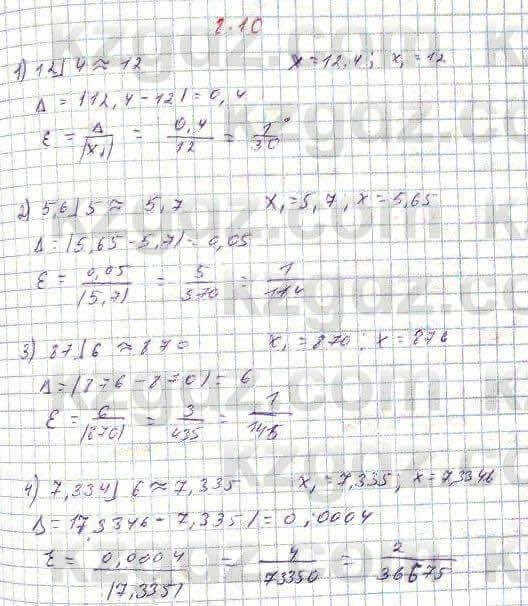 2.10
1) 12⌋4 ≈ 12 x = 12,4; x₁ = 12
Δ = |12,4 - 12| = 0,4
ε = Δ/|x₁| = 0,4/12 = 1/30
2) 5,6⌋5 ≈ 5,7 x₁ = 5,7, x = 5,65
Δ = |5,65 - 5,7| = 0,05
ε = 0,05/|5,7| = 5/570 = 1/114
3) 87⌋6 ≈ 870 x₁ = 870; x = 876
Δ = |876 - 870| = 6
ε = 6/|870| = 3/435 = 1/145
4) 7,334⌋6 ≈ 7,335 x₁ = 7,335; x = 7,3346
Δ = |7,3346 - 7,335| = 0,0004
ε = 0,0004/|7,335| = 4/73350 = 2/36675
kzgdz.com